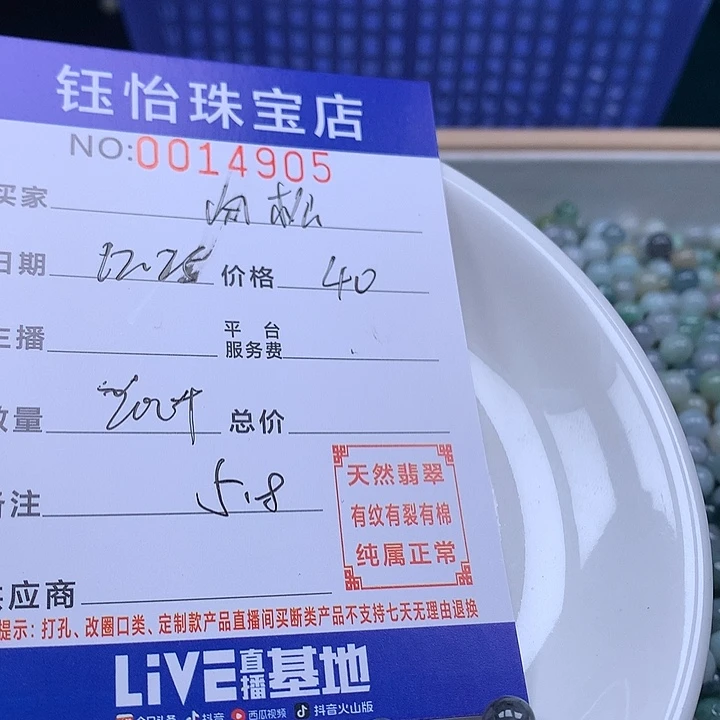 钰怡珠宝店
NO:0014905
买家
日期 12.25 价格 40
主播 平台服务费
数量 总价
备注 5.8
天然翡翠
有纹有裂有棉
纯属正常
供应商
提示：打孔、改圈口类、定制款产品直播间买断类产品不支持七天无理由退换
LiVE直播基地
抖音 西瓜视频 抖音火山版